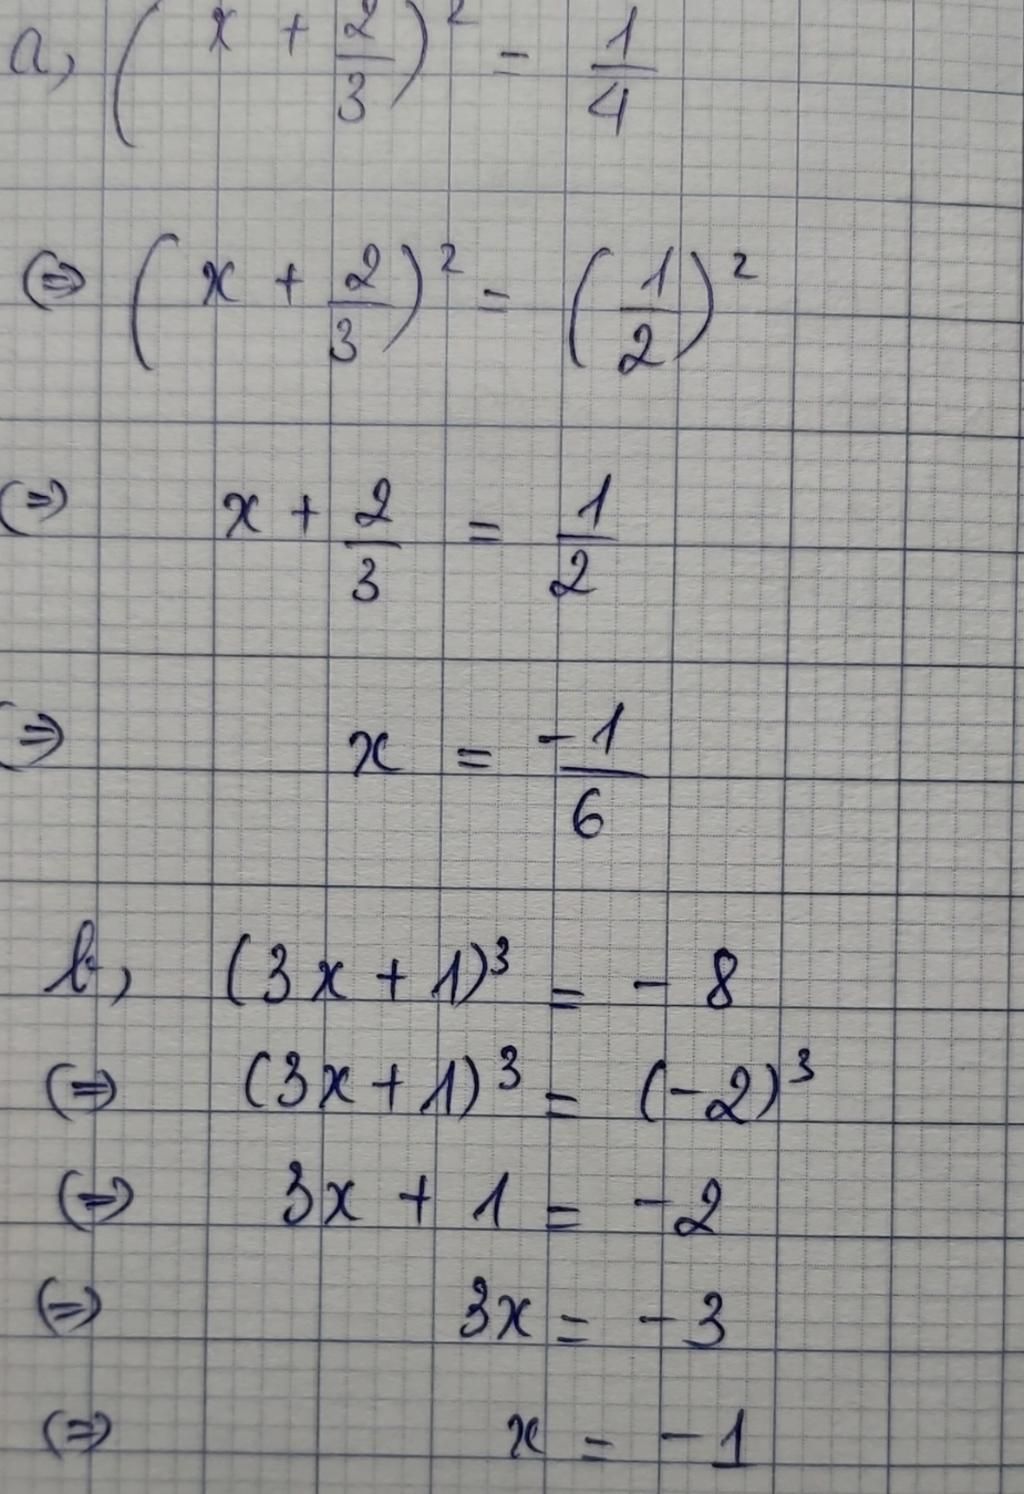 a, (x + 2/3)² = 1/4
(⇒) (x + 2/3)² = (1/2)²
(⇒) x + 2/3 = 1/2
⇒) x = -1/6
b, (3x + 1)³ = - 8
(⇒) (3x + 1)³ = (-2)³
(⇒) 3x + 1 = -2
(⇒) 3x = -3
(⇒) x = -1